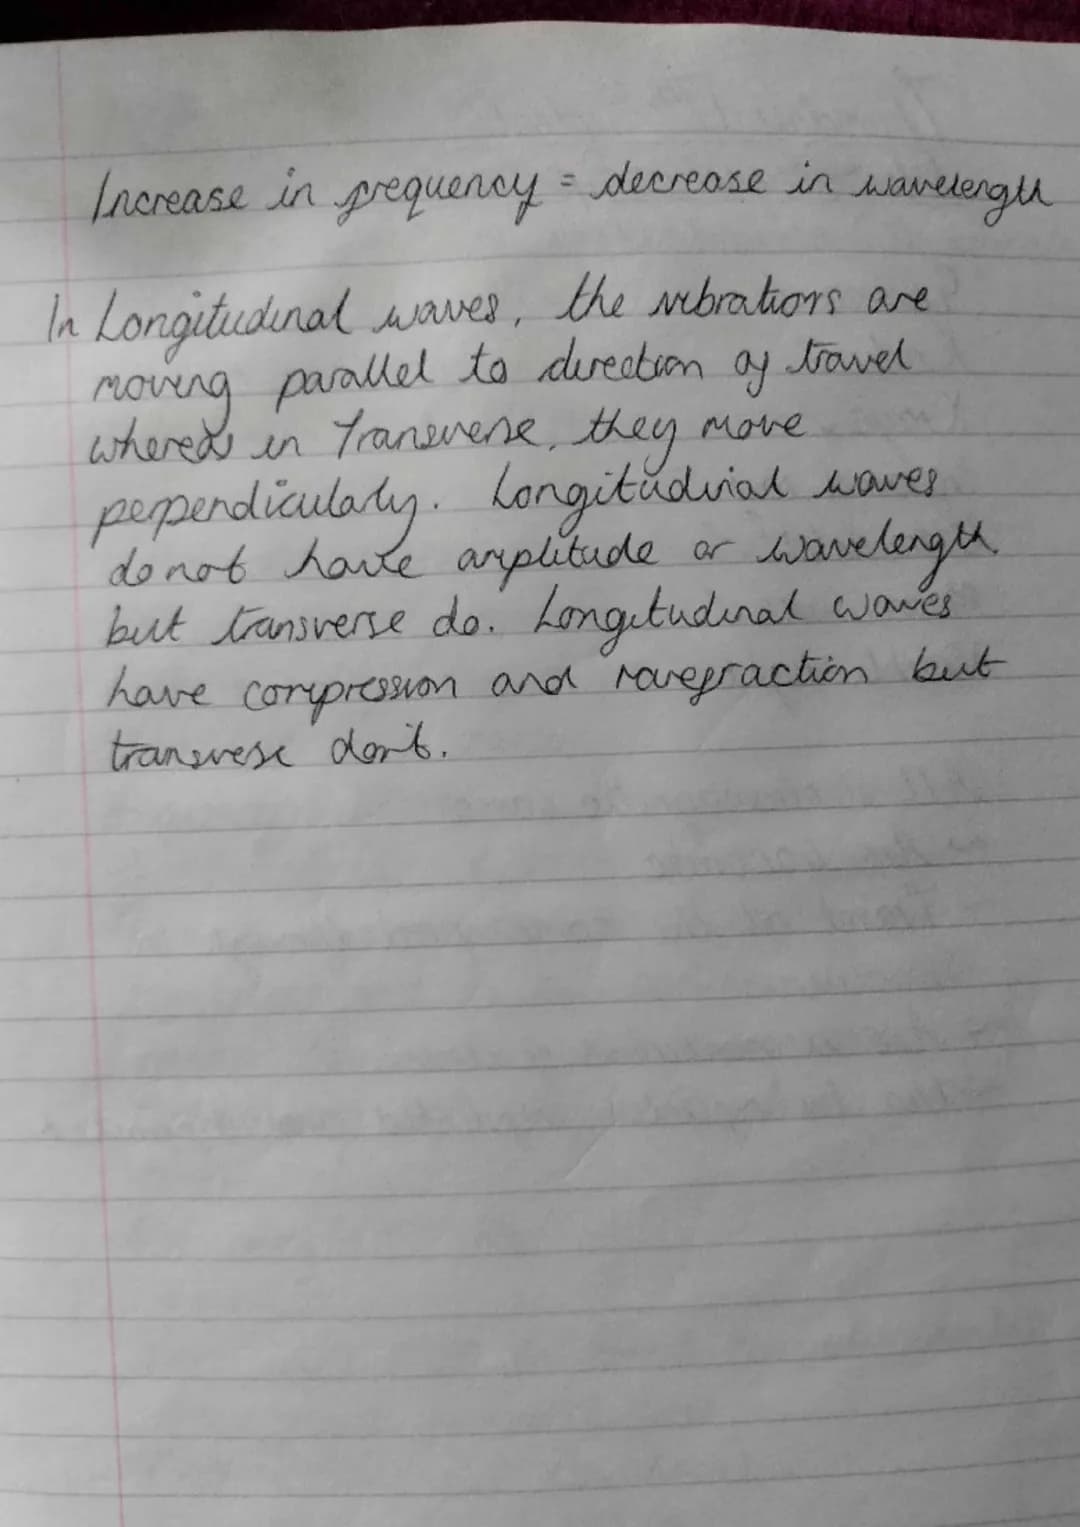 Increase in frequency = decrease in wavelength
In Longitudinal waves, the vibrations are
moving parallel to direction of travel
whereas in Transverse, they move
perpendicularly. Longitudinal waves
do not have amplitude or wavelength
but transverse do. Longitudinal waves
have compression and rarefraction but
transvese don't.